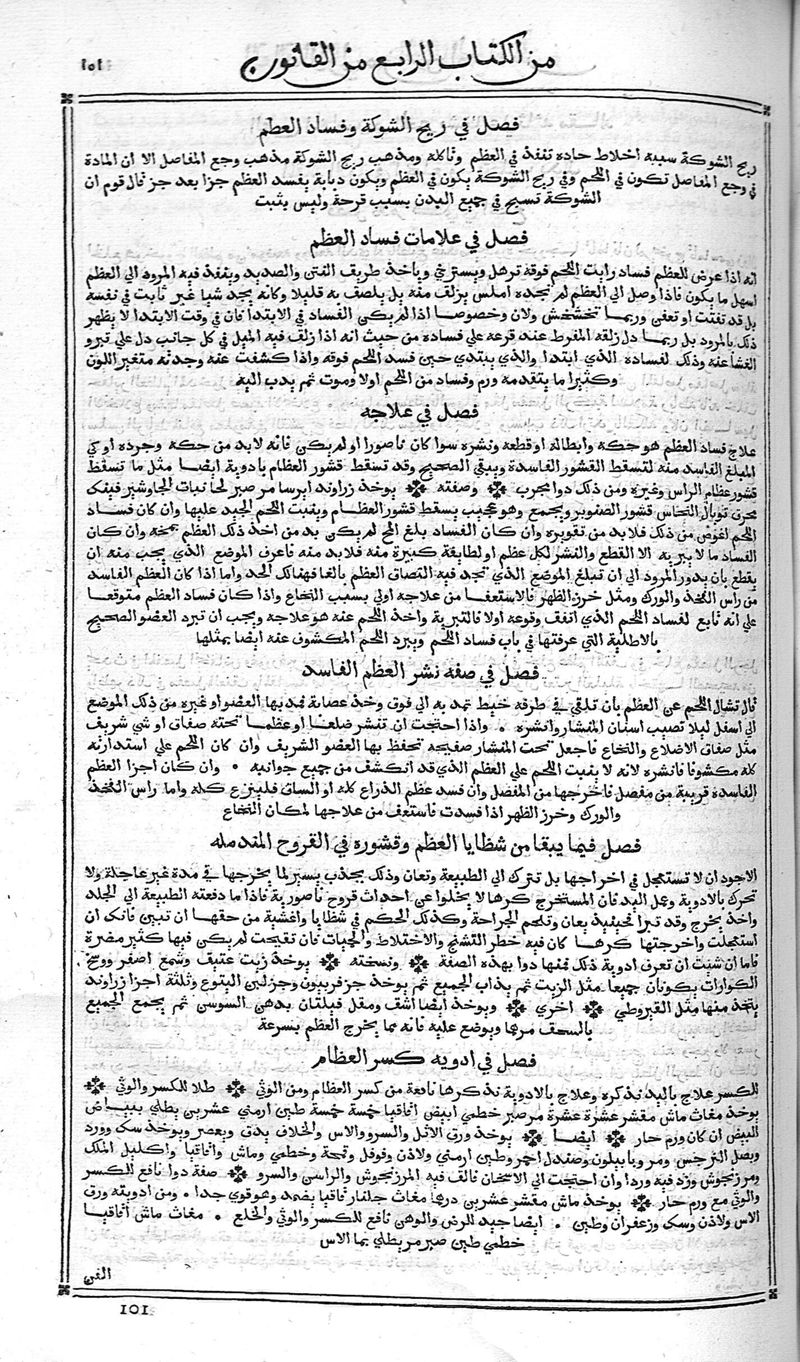 من الكتاب الرابع من القانون
١٥١
فصل في ريح الشوكة وفساد العظم
ريح الشوكة سببه اخلاط حاده تنفذ في العظم وتاكله ومذهب ريح الشوكة مذهب وجع المفاصل الا ان المادة
في وجع المفاصل تكون في اللحم وفي ريح الشوكة يكون في العظم ويكون دبابة يفسد العظم جزا بعد جز قال قوم ان
الشوكة تسيح في جميع البدن بسبب قرحة وليس يثبت
فصل في علامات فساد العظم
انه اذا عرض للعظم فساد رايت اللحم فوقه ترهل ويسترخي وياخذ طريق النتن والصديد وينفذ فيه المرود الي العظم
اسهل ما يكون فاذا وصل الي العظم لم تجده املس يزلف منه بل يلصق به قليلا وكانه يجد شيا غير ثابت في نفسه
بل قد تفتت او تعفن وربما تخشخش ولان وخصوصا اذا لم يكن الفساد في الابتدا فان في وقت الابتدا لا يظهر
ذلك بالمرود بل ربما دل زلقه المفرط عند قرعه علي فساده من حيث انه اذا زلق فيه الميل في كل جانب دل علي تبرو
الغشا عنه وذلك لفساده الذي ابتدا والذي يبتدي حين فسد اللحم فوقه واذا كشفت عنه وجدته متغير اللون
وكثيرا ما يتقدمه ورم وفساد من اللحم اولا وموت ثم يدب اليه
فصل في علاجه
علاج فساد العظم هو حكه وابطاله او قطعه ونشره سوا كان ناصورا او لم يكن فانه لابد من حكه وجرده او كي
المبلغ الفاسد منه لتسقط القشور الفاسدة ويبقي الصحيح وقد تسقط قشور العظام بادوية ايضا مثل ما تسقط
قشور عظام الراس وغيره ومن ذلك دوا مجرب وصفته يوخذ زراوند ايرسا مر صبر لحا نبات الجاوشير فينك
محرق توبال النحاس قشور الصنوبر ويجمع وهو عجيب يسقط قشور العظام وينبت اللحم الجيد عليها وان كان فساد
اللحم اغوص من ذلك فلابد من تقويره وان كان الفساد بلغ المخ لم يكن بد من اخذ ذلك العظم بمخه وان كان
الفساد ما لا يبريه الا القطع والنشر لكل عظم او لطايفة كبيرة منه فلابد منه فاعرف الموضع الذي يجب منه ان
يقطع بان يدور المرود الي ان تبلغ الموضع الذي تجد فيه التصاق العظم بالغا فهنالك الحد واما اذا كان العظم الفاسد
من راس الفخذ والورك ومثل خرز الظهر فالاستعفا من علاجه اولي بسبب النخاع واذا كان فساد العظم متوقعا
علي انه تابع لفساد اللحم الذي اتفق وقوعه اولا فالتبرية واخذ اللحم عنه هو علاجه ويجب ان تبرد العضو الصحيح
بالاطلية التي عرفتها في باب فساد اللحم ويبرد اللحم المكشوف عنه ايضا بمثلها
فصل في صفه نشر العظم الفاسد
قال تشال اللحم عن العظم بان تلقي في طرفه خيط تمد به الي فوق وخذ عصابة فمد بها العضو او غيره من ذلك الموضع
الي اسفل ليلا تصيب اسنان المنشار وانشره . واذا احتجت ان تنشر ضلعا او عظما تحته صفاق او شي شريف
مثل صفاق الاضلاع والنخاع فاجعل تحت المنشار صفيحه تحفظ بها العضو الشريف وان كان اللحم علي استدارته
كله مكشوفا فانشره لانه لا ينبت اللحم علي العظم الذي قد انكشف من جميع جوانبه . وان كان اجزا العظم
الفاسدة قريبة من مفصل فاخرجها من المفصل وان فسد عظم الذراع كله او الساق فلينزع كله واما راس الفخذ
والورك وخرز الظهر اذا فسدت فاستعف من علاجها لمكان النخاع
فصل فيما يبقا من شظايا العظم وقشوره في القروح المندمله
الاجود ان لا تستعجل في اخراجها بل تترك الي الطبيعة وتعان وذلك بجذب يسير لما يخرجها في مدة غير عاجلة ولا
تحرك بالادوية وعمل اليد فان المستخرج كرها لا يخلوا عن احداث قروح ناصورية فاذا ما دفعته الطبيعة الي الجلد
واخذ يخرج وقد تبرا فحينيذ يعان وتلحم الجراحة وكذلك الحكم في شظايا واغشية من حقها ان تبين فانك ان
استعجلت واخرجتها كرها كان فيه خطر التشنج والاختلاط والحميات فان تقيحت لم يكن فيها كثير مضرة
فاما ان شيت ان تعرف ادوية ذلك فمنها دوا بهذه الصفة ونسخته يوخذ زيت عتيق وشمع اصفر ووسخ
الكوارات يكونان جميعا مثل الزيت ثم يذاب الجميع ثم يوخذ جز فربيون وجز لبن اليتوع وثلثة اجزا زراوند
يتخذ منها مثل القيروطي اخري ويوخذ ايضا اشق ومقل فيلتان بدهن السوسن ثم يجمع الجميع
بالسحق مرهما ويوضع عليه فانه مما يخرج العظم بسرعة
فصل في ادويه كسر العظام
للكسر علاج باليد نذكره وعلاج بالادوية نذكرها نافعة من كسر العظام ومن الوثي طلا للكسر والوثي
يوخذ مغاث ماش مقشر عشرة عشرة مر صبر خطمي ابيض اقاقيا خمسة خمسة طين ارمني عشرين يطلي ببياض
البيض ان كان ورم حار ايضا يوخذ ورق الاثل والسرو والاس والخلاف يدق ويعصر ويوخذ سك وورد
وبصل النرجس ومر وبابيلون وصندل احمر وطين ارمني ولاذن وفوفل وقمحة وخطمي وماش واقاقيا واكليل الملك
ومرزنجوش وزد فيه وردا وان احتجت الي الاسخان فالق فيه المرزنجوش والراسن والسرو صفة دوا نافع للكسر
والوثي مع ورم حار يوخذ ماش مقشر عشرين درهما مغاث جلنار اقاقيا يضمد وهو قوي جدا . ومن ادويته ورق
الاس ولاذن وسك وزعفران وطين . ايضا جيد للرض والوهن نافع للكسر والوثي والخلع . مغاث ماش اقاقيا
خطمي طين صبر مر يطلي بما الاس
الفن
101